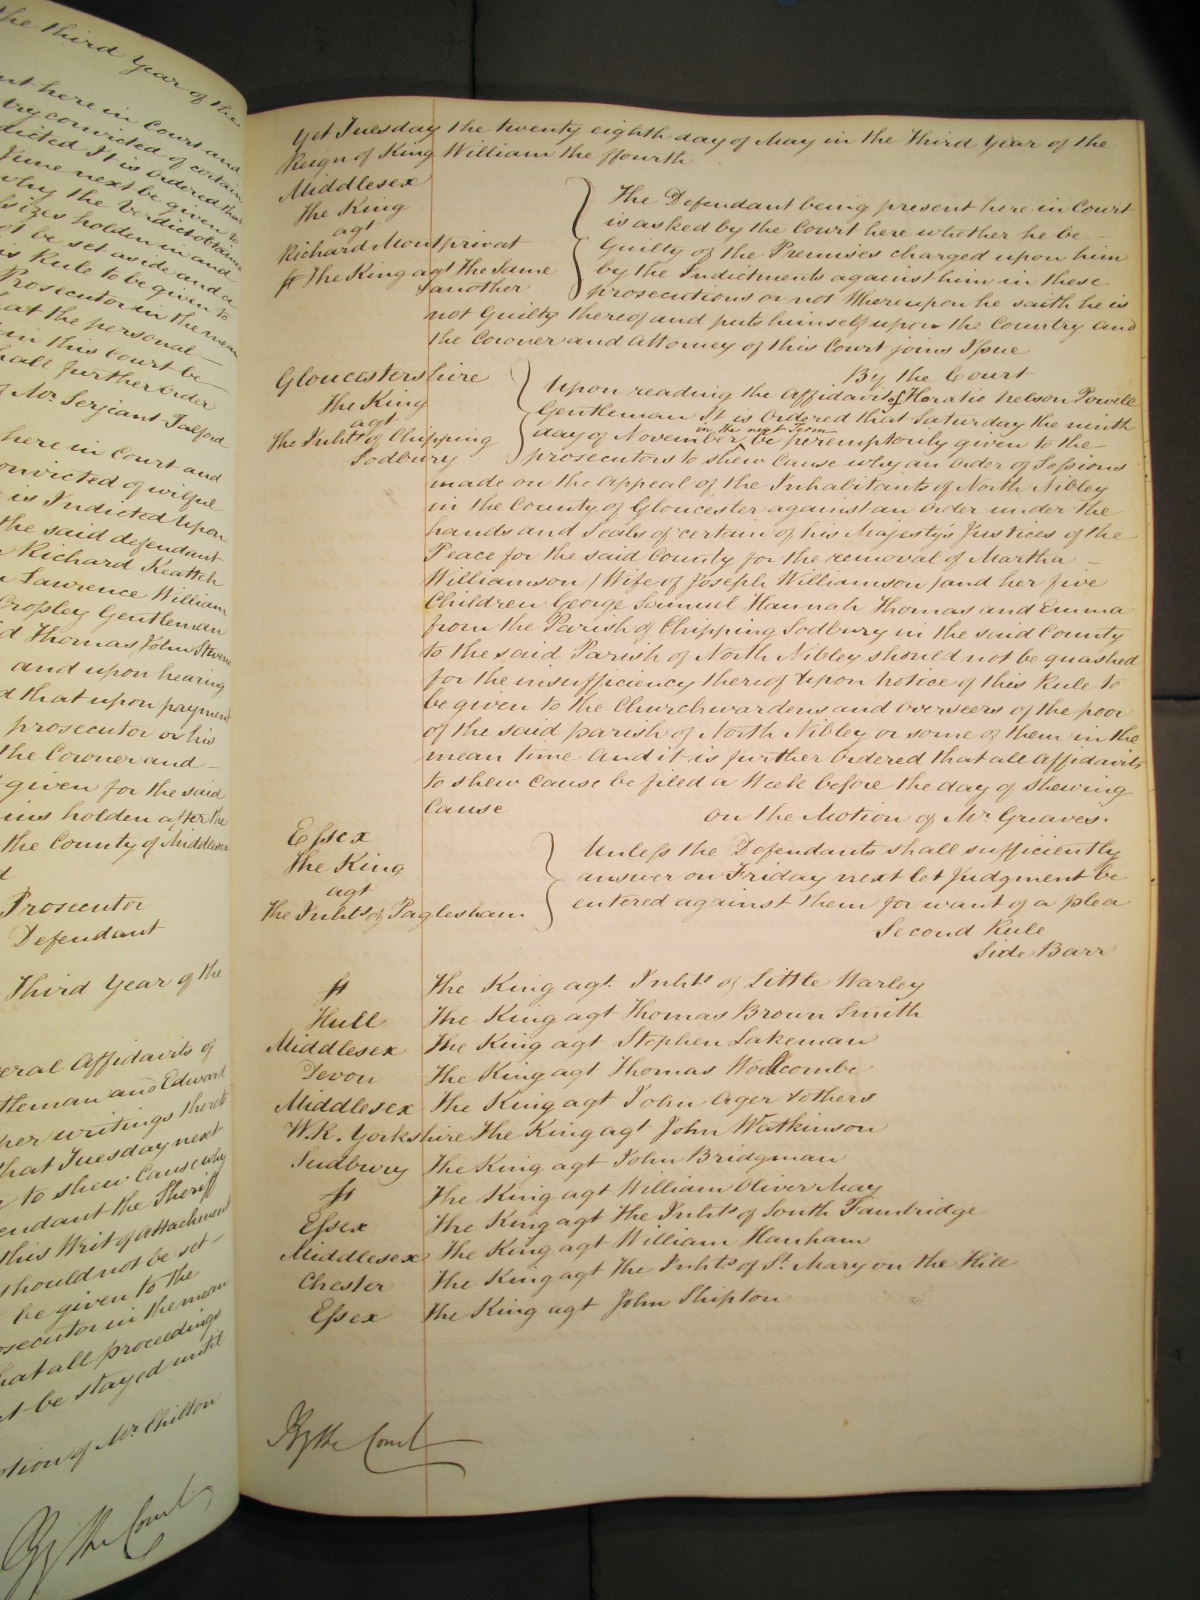 the third Year of the
nt here in Court and
try convicted of certain
dicted It is ordered that
June next be given to
why the Verdict obtained
sizes holden in and
ot be set aside and a
is Rule to be given to
Prosecutor in the mean
hat the personal
in this Court be
hall further order
of Mr. Serjeant Talfourd
here in Court and
onvicted of wilful
is Indicted upon
the said defendant
Richard Keatch
Lawrence William
Crossley Gentleman
d Thomas John Stevens
and upon hearing
d that upon payment
prosecutor or his
the Coroner and
given for the said
ings holden after the
the County of Middlesex
d
Prosecutor
Defendant
Third Year of the
eral Affidavits of
tleman and Edward
her writings thereto
that Tuesday next
to shew Cause why
endant the Sheriff
this Writ of attachment
should not be set
be given to the
osecutor in the mean
hat all proceedings
t be stayed until
otion of Mr. Chilton
By the Court
Yet Tuesday the twenty eighth day of May in the Third Year of the
Reign of King William the ffourth
Middlesex
The King
agt
Richard Montprivat
ss The King agt The Same
& another
The Defendant being present here in Court
is asked by the Court here whether he be
Guilty of the Premises charged upon him
by the Indictments against him in these
prosecutions or not Whereupon he saith he is
not Guilty thereof and puts himself upon the Country and
the Coroner and Attorney of this Court joins Issue
By the Court
Gloucestershire
The King
agt
The Inhts. of Chipping
Sodbury
Upon reading the Affidavit of Horatio Nelson Powell
Gentleman It is Ordered that Saturday the ninth
day of November in the next Term be peremptorily given to the
prosecutors to shew Cause why an order of Sessions
made on the Appeal of the Inhabitants of North Nibley
in the County of Gloucester against an order under the
hands and Seals of certain of his Majesty's Justices of the
Peace for the said County for the removal of Martha
Williamson / Wife of Joseph Williamson / and her five
Children George Samuel Hannah Thomas and Emma
from the Parish of Chipping Sodbury in the said County
to the said Parish of North Nibley should not be quashed
for the insufficiency thereof Upon notice of this Rule to
be given to the Churchwardens and Overseers of the poor
of the said parish of North Nibley or some of them in the
mean time And it is further Ordered that all affidavits
to shew cause be filed a Week before the day of shewing
Cause
On the Motion of Mr. Greaves.
Essex
The King
agt
The Inhts. of Paglesham
Unless the Defendants shall sufficiently
answer on Friday next let Judgment be
entered against them for want of a plea
Second Rule
Side Barr
ss The King agt. Inhts. of Little Warley
Hull The King agt Thomas Brown Smith
Middlesex The King agt Stephen Lakeman
Devon The King agt Thomas Woollcombe
Middlesex The King agt John Ager & others
W.R. Yorkshire The King agt John Watkinson
Sudbury The King agt John Bridgman
ss The King agt William Oliver May
Essex The King agt The Inhts. of South Fambridge
Middlesex The King agt William Hanham
Chester The King agt The Inhts. of St. Mary on the Hill
Essex The King agt John Shipton
By the Court